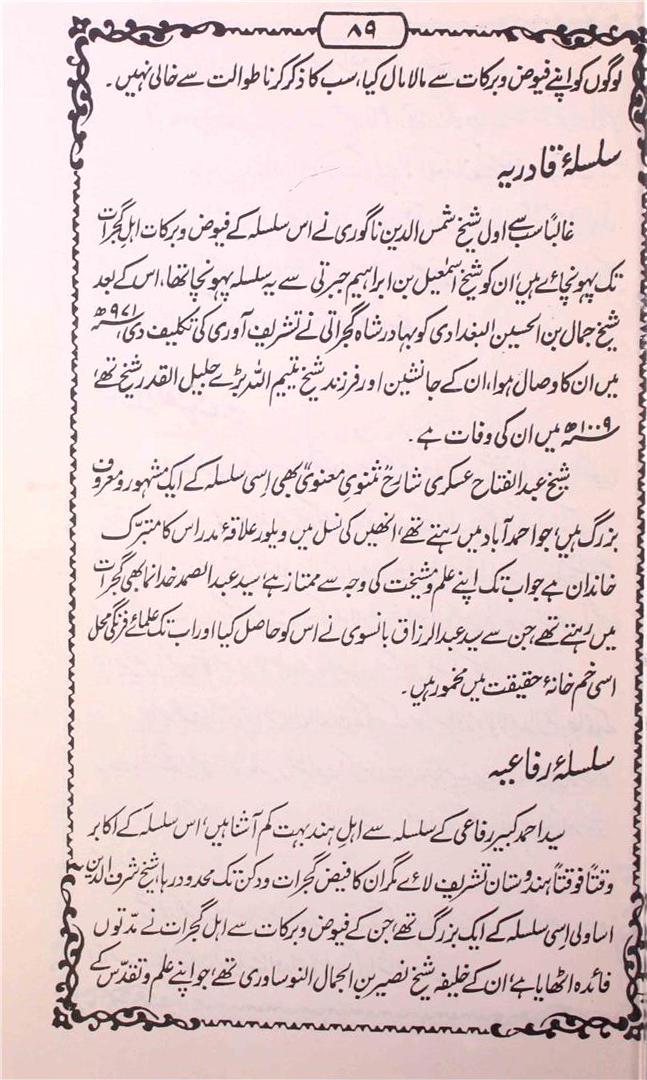 ۸۹
لوگوں کو اپنے فیوض و برکات سے مالا مال کیا، سب کا ذکر کرنا طوالت سے خالی نہیں۔
سلسلۂ قادریہ
غالباً سب سے اول شیخ شمس الدین ناگوری نے اس سلسلہ کے فیوض و برکات اہل گجرات
تک پہونچائے ہیں، ان کو شیخ اسمٰعیل بن ابراہیم جبرتی سے یہ سلسلہ پہونچا تھا، اس کے بعد
شیخ جمال بن الحسین البغدادی کو بہادر شاہ گجراتی نے تشریف آوری کی تکلیف دی، ۹۷۱ھ
میں ان کا وصال ہوا، ان کے جانشین اور فرزند شیخ یتیم اللہ بڑے جلیل القدر شیخ تھے،
۱۰۰۹ھ میں ان کی وفات ہے۔
شیخ عبد الفتاح عسکری شارحؒ مثنویِ معنویؒ بھی اسی سلسلہ کے ایک مشہور و معروف
بزرگ ہیں، جو احمد آباد میں رہتے تھے، انھیں کی نسل میں ویلور علاقۂ مدراس کا متبرک
خاندان ہے جو اب تک اپنے علم و مشیخت کی وجہ سے ممتاز ہے، سید عبد الصمد خدانما بھی گجرات
میں رہتے تھے، جن سے سید عبد الرزاق بانسوی نے اس کو حاصل کیا اور اب تک علمائے فرنگی محل
اسی خم خانۂ حقیقت میں مخمور ہیں۔
سلسلۂ رفاعیہ
سید احمد کبیر رفاعی کے سلسلہ سے اہل ہند بہت کم آشنا ہیں، اس سلسلہ کے اکابر
وقتاً فوقتاً ہندوستان تشریف لائے مگر ان کا فیض گجرات و دکن تک محدود رہا، شیخ شرف الدین
اساولی اسی سلسلہ کے ایک بزرگ تھے، جن کے فیوض و برکات سے اہل گجرات نے مدّتوں
فائدہ اٹھایا ہے، ان کے خلیفہ شیخ نصیر بن الجمال النوساوری تھے، جو اپنے علم و تقدّس کے